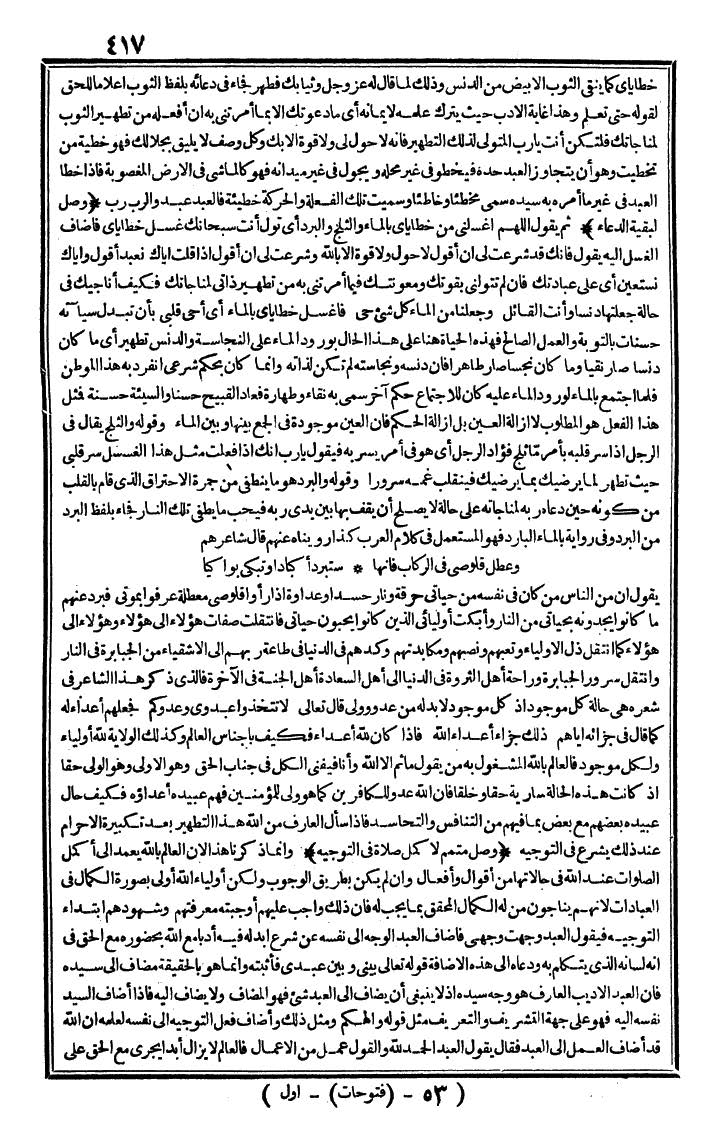 ٤١٧
خطاياى كما ينقى الثوب الابيض من الدنس وذلك لما قال له عز وجل وثيابك فطهر فجاء فى دعائه بلفظ الثوب اعلاما للحق
لقوله حتى نعلم وهذا غاية الادب حيث يترك علمه لايمانه أى ما دعوتك الا بما أمرتنى به ان أفعله من تطهير الثوب
لمناجاتك فلتكن أنت يارب المتولى لذلك التطهير فانه لا حول لى ولا قوة الا بك وكل وصف لا يليق بجلالك فهو خطية من
تخطيت وهو أن يتجاوز العبد حده فيخطو فى غير محله ويجول فى غير ميدانه فهو كالماشى فى الارض المغصوبة فاذا خطا
العبد فى غير ما أمره به سيده سمى مخطئا وخاطئا وسميت تلك الفعلة والحركة خطيئة فالعبد عبد والرب رب ﴿وصل
لبقية الدعاء﴾ ثم يقول اللهم اغسلنى من خطاياى بالماء والثلج والبرد أى تول أنت سبحانك غسل خطاياى فاضاف
الغسل اليه يقول فانك قد شرعت لى ان أقول لا حول ولا قوة الا بالله وشرعت لى ان أقول اذا قلت اياك نعبد أقول واياك
نستعين أى على عبادتك فان لم تتولنى بقوتك ومعونتك فيما أمرتنى به من تطهير ذاتى لمناجاتك فكيف أناجيك فى
حالة جعلتها دنسا وأنت القائل وجعلنا من الماء كل شئ حى فاغسل خطاياى بالماء أى أحى قلبى بأن تبدل سيآته
حسنات بالتوبة والعمل الصالح فهذه الحياة هنا على هذا الحال بورود الماء على النجاسة والدنس تطهير أى ما كان
دنسا صار نقيا وما كان نجسا صار طاهرا فان دنسه ونجاسته لم تكن لذاته وانما كان بحكم شرعى انفرد به هذا الموطن
فلما اجتمع بالماء لورود الماء عليه كان للاجتماع حكم آخر سمى به نقاء وطهارة فعاد القبيح حسنا والسيئة حسنة فمثل
هذا الفعل هو المطلوب لا ازالة العين بل ازالة الحكم فان العين موجودة فى الجمع بينها وبين الماء وقوله والثلج يقال فى
الرجل اذا سر قلبه بأمر مّا ثلج فؤاد الرجل أى هو فى أمر يسر به فيقول يارب انك اذا فعلت مثل هذا الغسل سر قلبى
حيث تطهر لما يرضيك بما يرضيك فينقلب غمه سرورا وقوله والبرد هو ما ينطفى من جمرة الاحتراق الذى قام بالقلب
من كونه حين دعاه ربه لمناجاته على حالة لا يصلح أن يقف بها بين يدى ربه فيحب ما يطفى تلك النار فجاء بلفظ البرد
من البرد وفى رواية بالماء البارد فهو المستعمل فى كلام العرب كذا رويناه عنهم قال شاعرهم
وعطل قلوصى فى الركاب فانها * ستبرد أكبادا وتبكى بواكيا
يقول ان من الناس من كان فى نفسه من حياتى حرقة ونار حسد او عداوة اذا رأوا قلوصى معطلة عرفوا بموتى فبرد عنهم
ما كانوا يجدونه بحياتى من النار وأبكت أوليائى الذين كانوا يحبون حياتى فانتقلت صفات هؤلاء الى هؤلاء وهؤلاء الى
هؤلاء كما انتقل ذل الاولياء وتعبهم ونصبهم ومكابدتهم وكدهم فى الدنيا فى طاعة ربهم الى الاشقياء من الجبابرة فى النار
وانتقل سرور الجبابرة وراحة أهل الثروة فى الدنيا الى أهل السعادة أهل الجنة فى الآخرة فالذى ذكر هذا الشاعر فى
شعره هى حالة كل موجود اذ كل موجود لابد له من عدو وولى قال تعالى لا تتخذوا عدوى وعدوكم فجعلهم أعداء له
كما قال فى جزائه اياهم ذلك جزاء أعداء الله فاذا كان لله أعداء فكيف باجناس العالم وكذلك الولاية لله أولياء
ولكل موجود فالعالم بالله المشغول به من يقول ما ثم الا الله وأنا فيفنى الكل فى جناب الحق وهو الاولى وهو الولى حقا
اذ كانت هذه الحالة سارية حقا وخلقا فان الله عدو للكافرين كما هو ولى للمؤمنين فهم عبيده أعداؤه فكيف حال
عبيده بعضهم مع بعض بما فيهم من التنافس والتحاسد فاذا سأل العارف من الله هذا التطهير بعد تكبيرة الاحرام
عند ذلك يشرع فى التوجيه ﴿وصل متمم لا كمل صلاة فى التوجيه﴾ وانما ذكرنا هذا لان العالم بالله يعمد الى أكمل
الصلوات عند الله فى حالاتها من أقوال وأفعال وان لم يكن بطريق الوجوب ولكن أولياء الله أولى بصورة الكمال فى
العبادات لانهم يناجون من له الكمال المحقق بما يجب له فان ذلك واجب عليهم أوجبته معرفتهم وشهودهم ابتداء
التوجيه فيقول العبد وجهت وجهى فاضاف العبد الوجه الى نفسه عن شرع ابدله فيه أدبا مع الله بحضوره مع الحق فى
انه لسانه الذى يتكلم به ودعاه الى هذه الاضافة قوله تعالى بينى وبين عبدى فأثبته وانما هو بالحقيقة مضاف الى سيده
فان العبد الاديب العارف هو وجه سيده اذ لا ينبغى أن يضاف الى العبد شئ فهو المضاف ولا يضاف اليه فاذا أضاف السيد
نفسه اليه فهو على جهة التشريف والتعريف مثل قوله والهكم ومثل ذلك وأضاف فعل التوجيه الى نفسه لعلمه ان الله
قد أضاف العمل الى العبد فقال يقول العبد الحمد لله والقول عمل من الاعمال فالعالم لا يزال أبدا يجرى مع الحق على
( ٥٣ - (فتوحات) - اول )